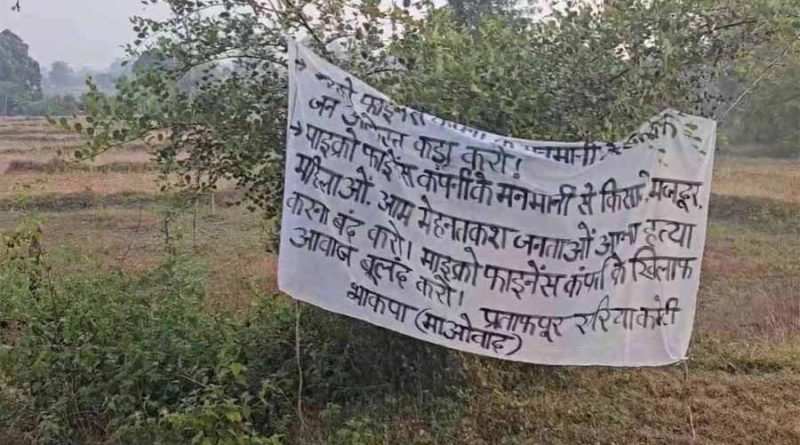 फाइनेंस
जन आंदोलन कड़ा करो!
→ माइक्रो फाइनेंस कंपनी के मनमानी से किसान, मजदूर,
महिलाओं, आम मेहनतकश जनताओं आत्म हत्या
करना बंद करो। माइक्रो फाइनेंस कंपनी के खिलाफ
आवाज बूलंद करो।
प्रतापपूर एरिया कमेटी
भाकपा (माओवाद)